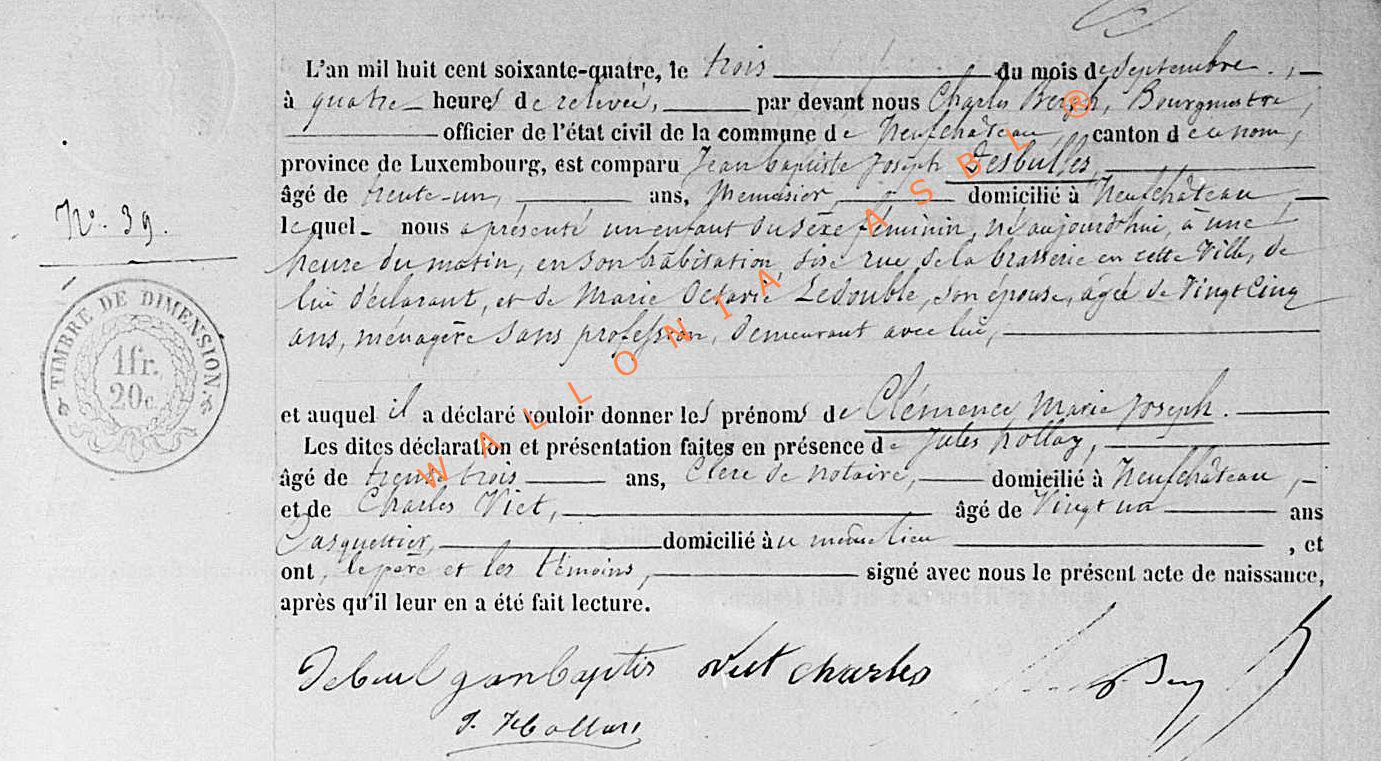 L'an mil huit cent soixante-quatre, le trois du mois de septembre,
à quatre heures de relevée, par devant nous Charles Bergh, Bourgmestre,
officier de l'état civil de la commune de Neufchâteau, canton d ce nom,
province de Luxembourg, est comparu Jean baptiste Joseph Desbulles,
âgé de trente-un, ans, Menuisier, domicilié à Neufchâteau,
lequel nous a présenté un enfant du sèxe féminin, né aujourd'hui, à une
heure du matin, en son habitation, sise rue de la brasserie en cette Ville, de
lui déclarant, et de Marie Octavie Ledouble, son épouse, agée de Vingt Cinq
ans, ménagère sans profession, demeurant avec lui,
N°. 39.
TIMBRE DE DIMENSION.
1 fr.
20 c.
et auquel il a déclaré vouloir donner les prénoms de Clémence Marie Joseph.
Les dites déclaration et présentation faites en présence de Jules hollay,
âgé de trente trois ans, Clerc de notaire, domicilié à Neufchâteau,
et de Charles Viet, âgé de Vingt un ans
Casquettier, domicilié au même lieu, et
ont, le père et les témoins, signé avec nous le présent acte de naissance,
après qu'il leur en a été fait lecture.
Debul ganbaptis Viet charles
J. Hollay
WALLONIA ASBL ®